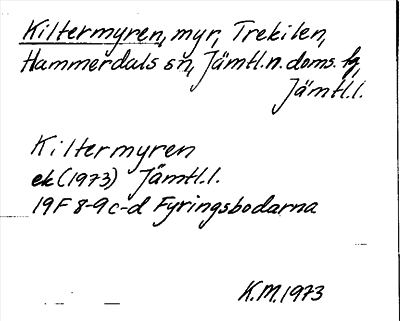 Kiltermyren, myr, Trekilen,
Hammerdals sn, Jämtl.n.doms. fg,
Jämtl.l.
Kiltermyren
ek (1973) Jämtl.l.
19F 8-9 c-d Fyringsbodarna
K.M. 1973